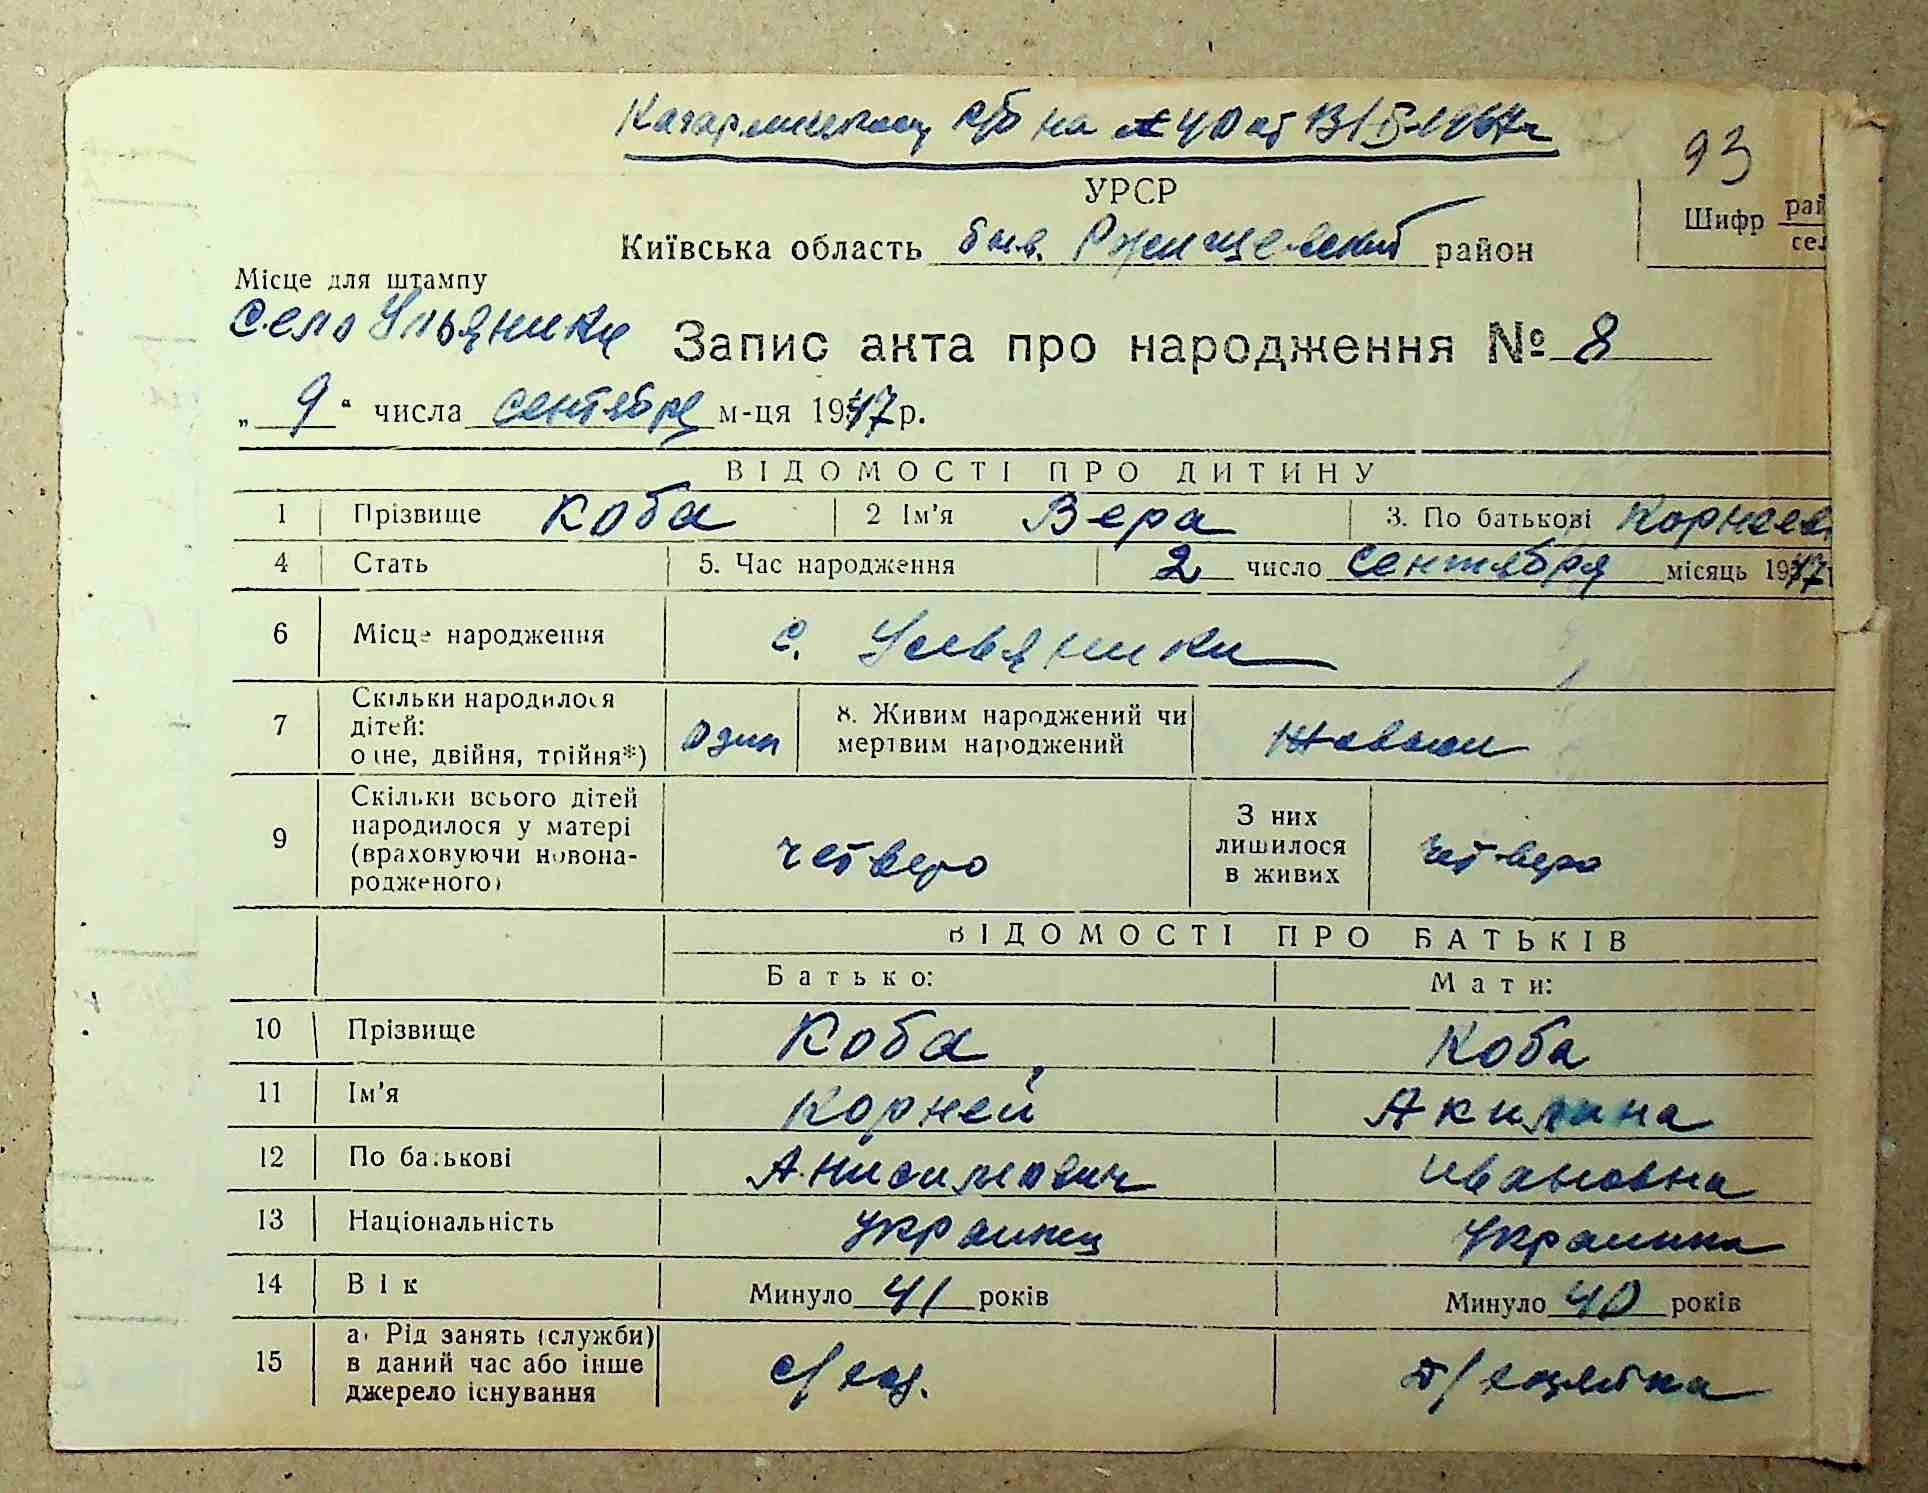 на № 40 от 13/
93
УРСР
Шифр рай
сел
Київська область быв. Ржищевский район
Місце для штампу
Село Ульяники
Запис акта про народження № 8
„ 9 “ числа сентября м-ця 1947 р.
ВІДОМОСТІ ПРО ДИТИНУ
1 Прізвище Коба 2 Ім'я Вера 3. По батькові Корнеев
4 Стать 5. Час народження 2 число сентября місяць 1947
6 Місце народження с. Ульяники
7 Скільки народилося дітей: одне, двійня, трійня*) один 8. Живим народжений чи мертвим народжений
9 Скільки всього дітей народилося у матері (враховуючи новонародженого) четверо З них лишилося в живих четверо
ВІДОМОСТІ ПРО БАТЬКІВ
Батько: Мати:
10 Прізвище Коба Коба
11 Ім'я Корней Акилина
12 По батькові Анисимович Ивановна
13 Національність украинец украинка
14 Вік Минуло 41 років Минуло 40 років
15 а) Рід занять (служби) в даний час або інше джерело існування